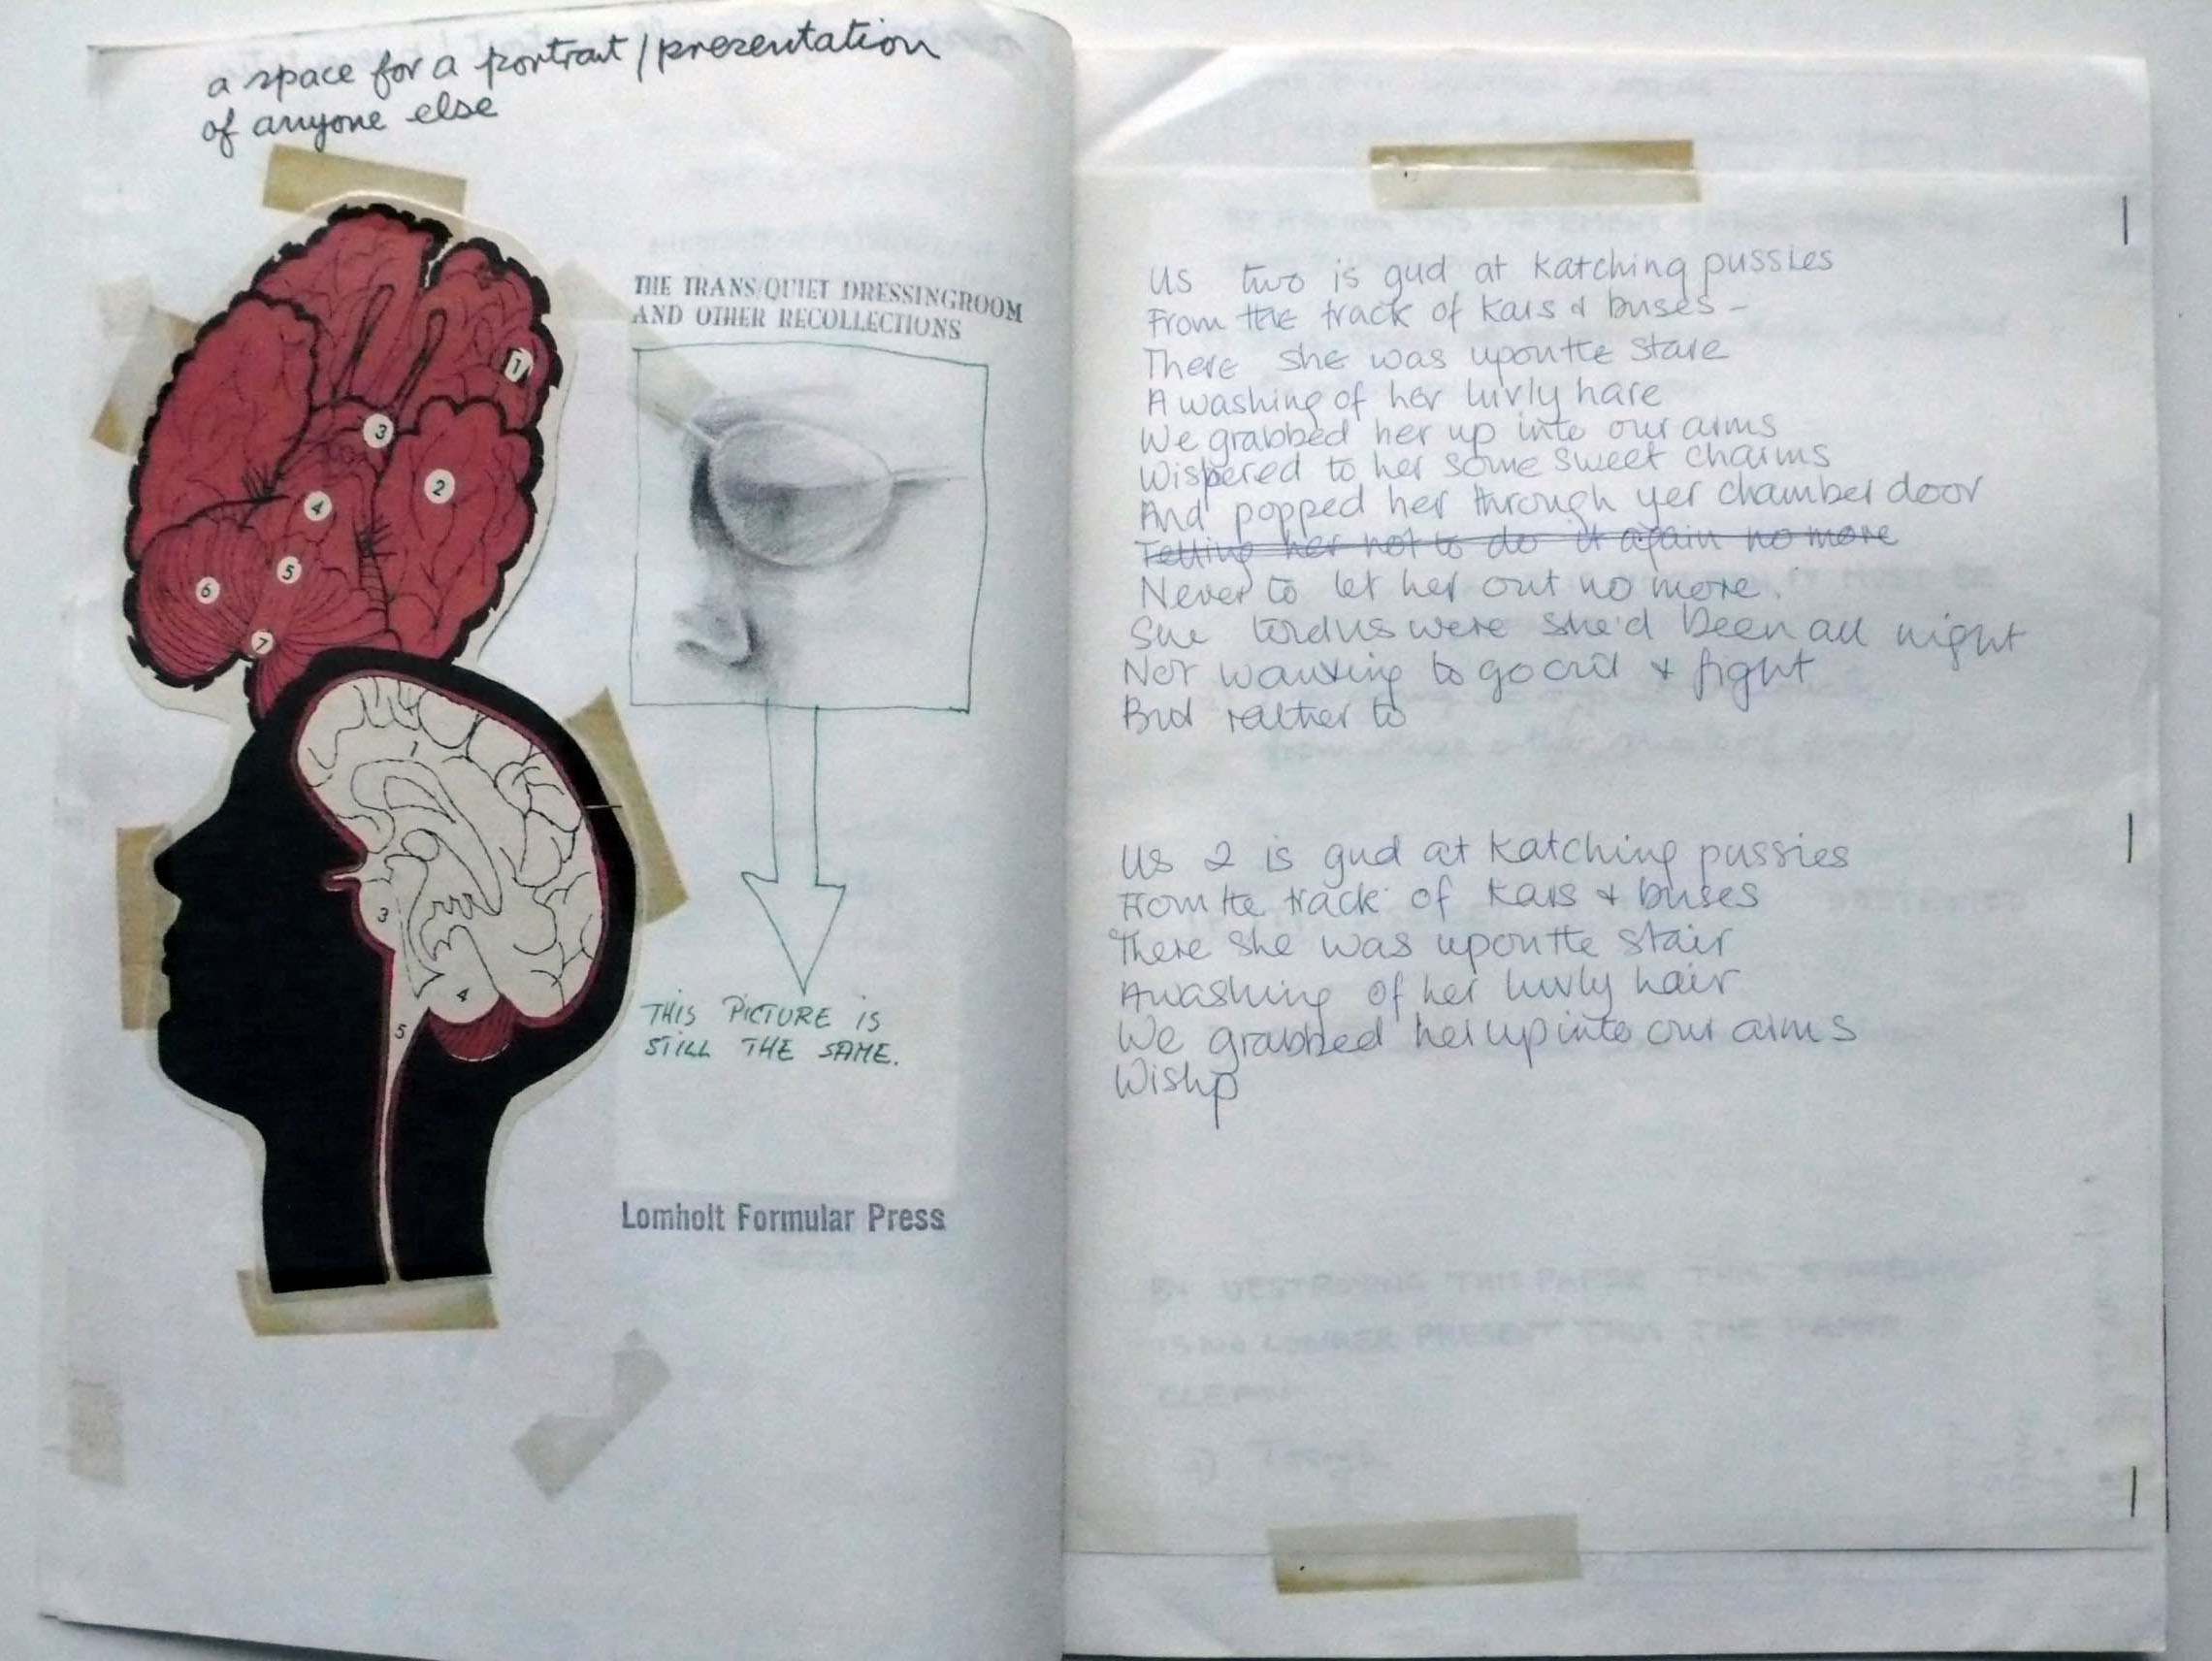 a space for a portrait / presentation
of anyone else
THE TRANS/QUIET DRESSINGROOM
AND OTHER RECOLLECTIONS
1
3
2
4
5
6
7
1
3
4
5
THIS PICTURE IS
STILL THE SAME.
Lomholt Formular Press
Us two is gud at Katching pussies
From the track of Kars & buses -
There she was upon the stare
A washing of her luvly hare
We grabbed her up into our arms
Wispered to her some sweet charms
And popped her through yer chamber door
Telling her not to do it again no more
Never to let her out no more.
She told us were she'd been all night
Not wanting to go out & fight
But rather to
Us 2 is gud at Katching pussies
From the track of Kars & buses
There she was upon the stair
Awashing of her luvly hair
We grabbed her up into our arms
Wishp
DESTROYING THIS PAPER THIS
PRESENT THE PAPER